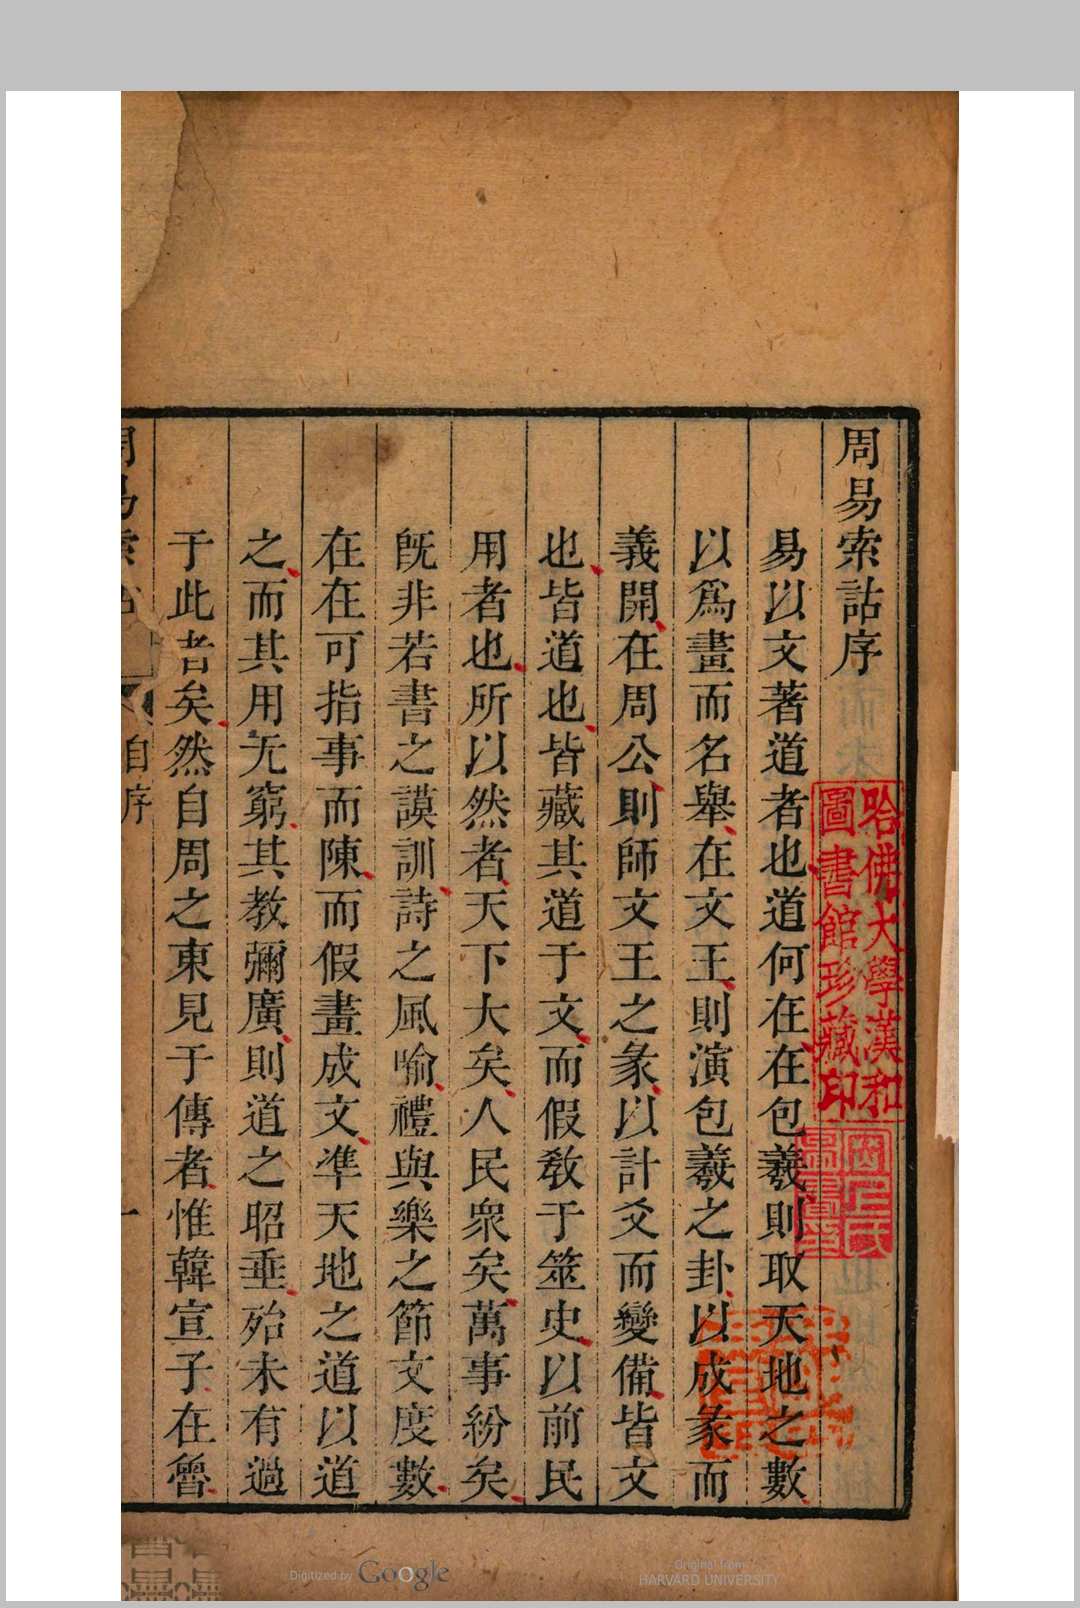 周易索詁序
易以文著道者也道何在在包羲則取天地之數
以爲畫而名舉在文王則演包羲之卦以成彖而
義開在周公則師文王之彖以計爻而變備皆文
也皆道也皆藏其道于文而假教于筮史以前民
用者也所以然者天下大矣人民衆矣萬事紛矣
旣非若書之謨訓詩之風喻禮與樂之節文度數
在在可指事而陳而假畫成文準天地之道以道
之而其用无窮其教彌廣則道之昭垂殆未有過
于此者矣然自周之東見于傳者惟韓宣子在魯
周易索
自序
一
哈佛大學漢和
圖書館珍藏印
Digitized by Google
Original from
HARVARD UNIVERSITY